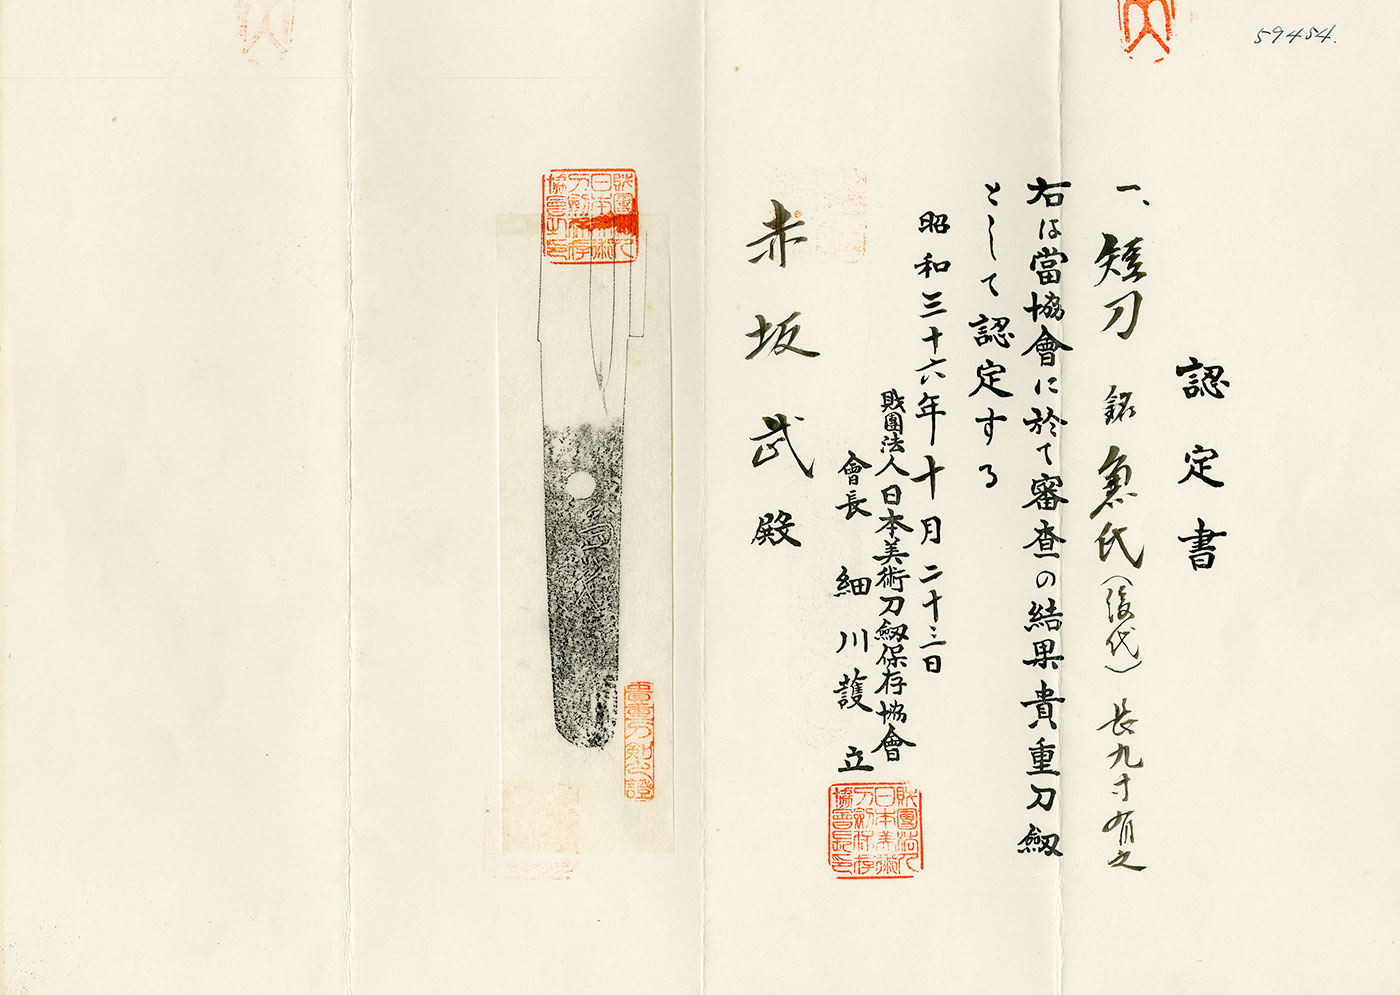 59454.
認定書
一、短刀 銘 兼氏(後代) 長九寸有之
右は當協會に於て審査の結果貴重刀劔
として認定する
昭和三十六年十月二十三日
財團法人日本美術刀劔保存協會
會長 細川護立
財團法人日本美術刀劔保存協會長印
赤坂武殿
財團法人日本美術刀劔保存協會之印
兼氏
貴重刀剣之證